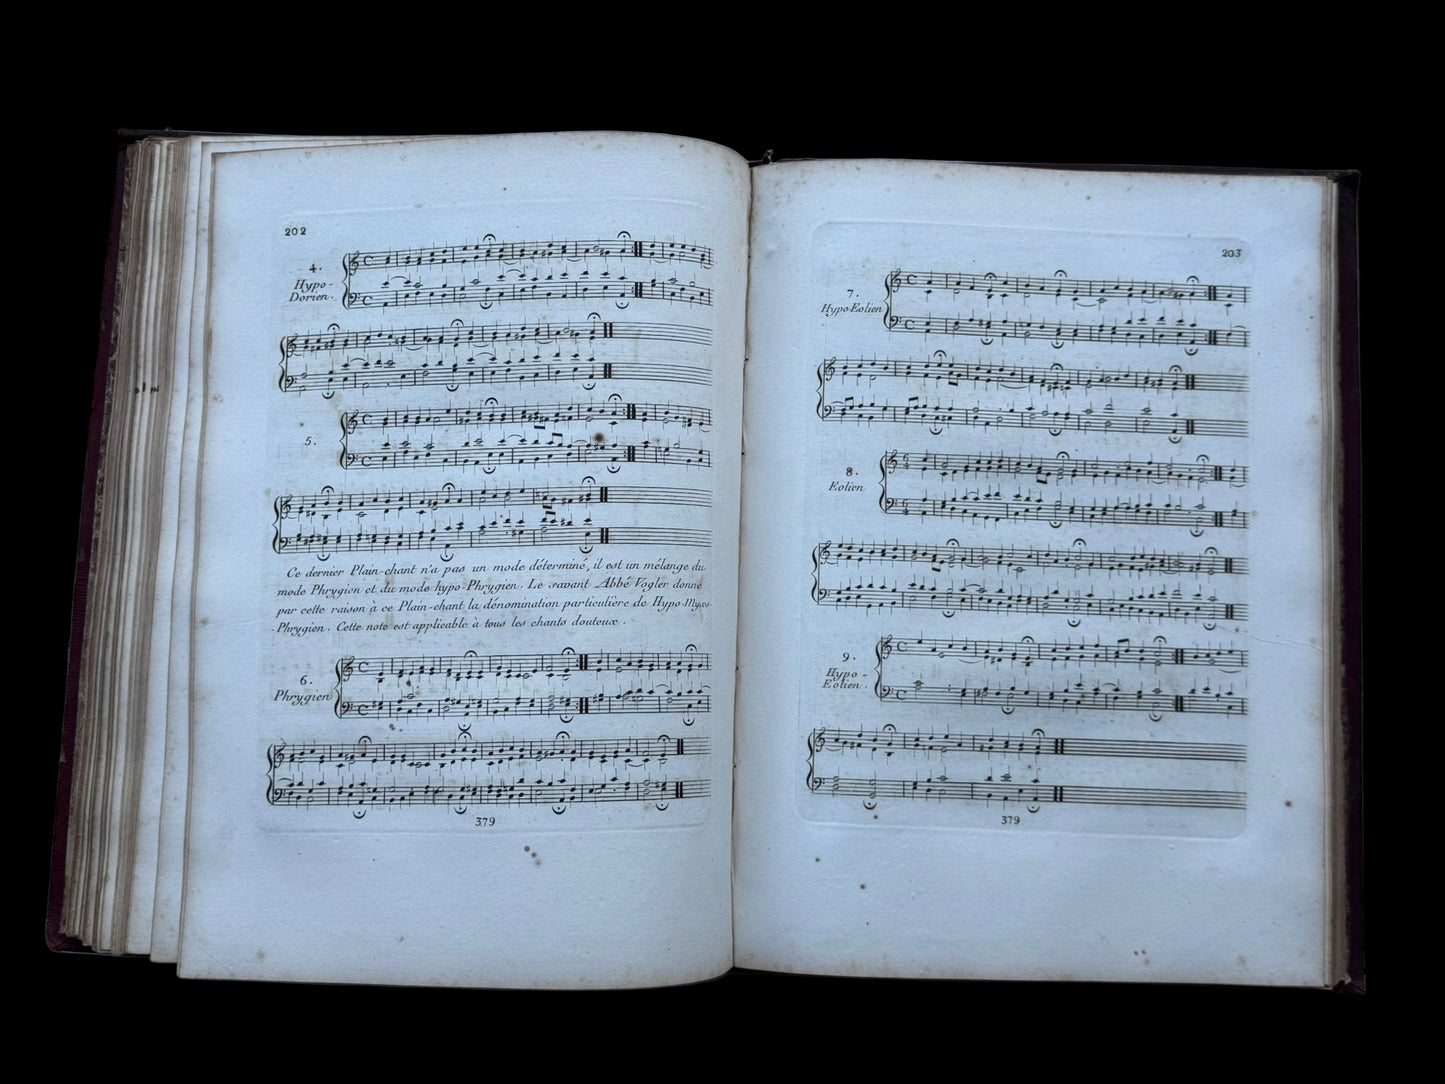 202
4.
Hypo-
Dorien.
5.
Ce dernier Plain-chant n'a pas un mode déterminé, il est un mélange du
mode Phrygien et du mode hypo-Phrygien. Le savant Abbé Vogler donne
par cette raison à ce Plain-chant la dénomination particulière de Hypo-Myxo-
-Phrygien. Cette note est applicable à tous les chants douteux.
6.
Phrygien
379
203
7.
Hypo-Eolien
8.
Eolien
9.
Hypo-
Eolien.
379